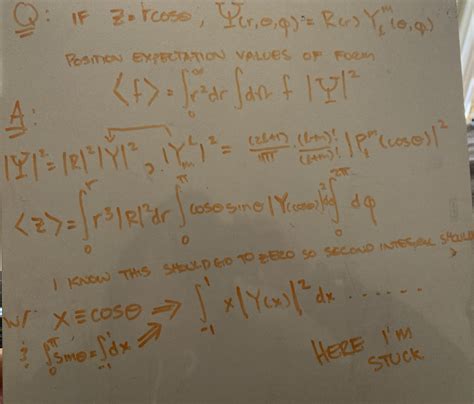 Q: IF z = r cosθ, Ψ(r,θ,φ) = R(r) Y_l^m (θ,φ)
POSITION EXPECTATION VALUES OF FORM
<f> = ∫_0^∞ r² dr ∫ dΩ f |Ψ|²
A:
|Ψ|² = |R|²|Y|², |Y_m^l|² = (2l+1)/4π (l-m)!/(l+m)! |P_l^m (cosθ)|²
<z> = ∫_0^r r³ |R|² dr ∫_0^π cosθ sinθ |Y(cosθ)|² dθ ∫_0^2π dφ
I KNOW THIS SHOULD GO TO ZERO SO SECOND INTEGRAL SHOULD
w/ x ≡ cosθ ⇒ ∫_-1^1 x |Y(x)|² dx ......
& ∫_0^π sinθ = ∫_-1^1 dx ⇒
HERE I'M
STUCK